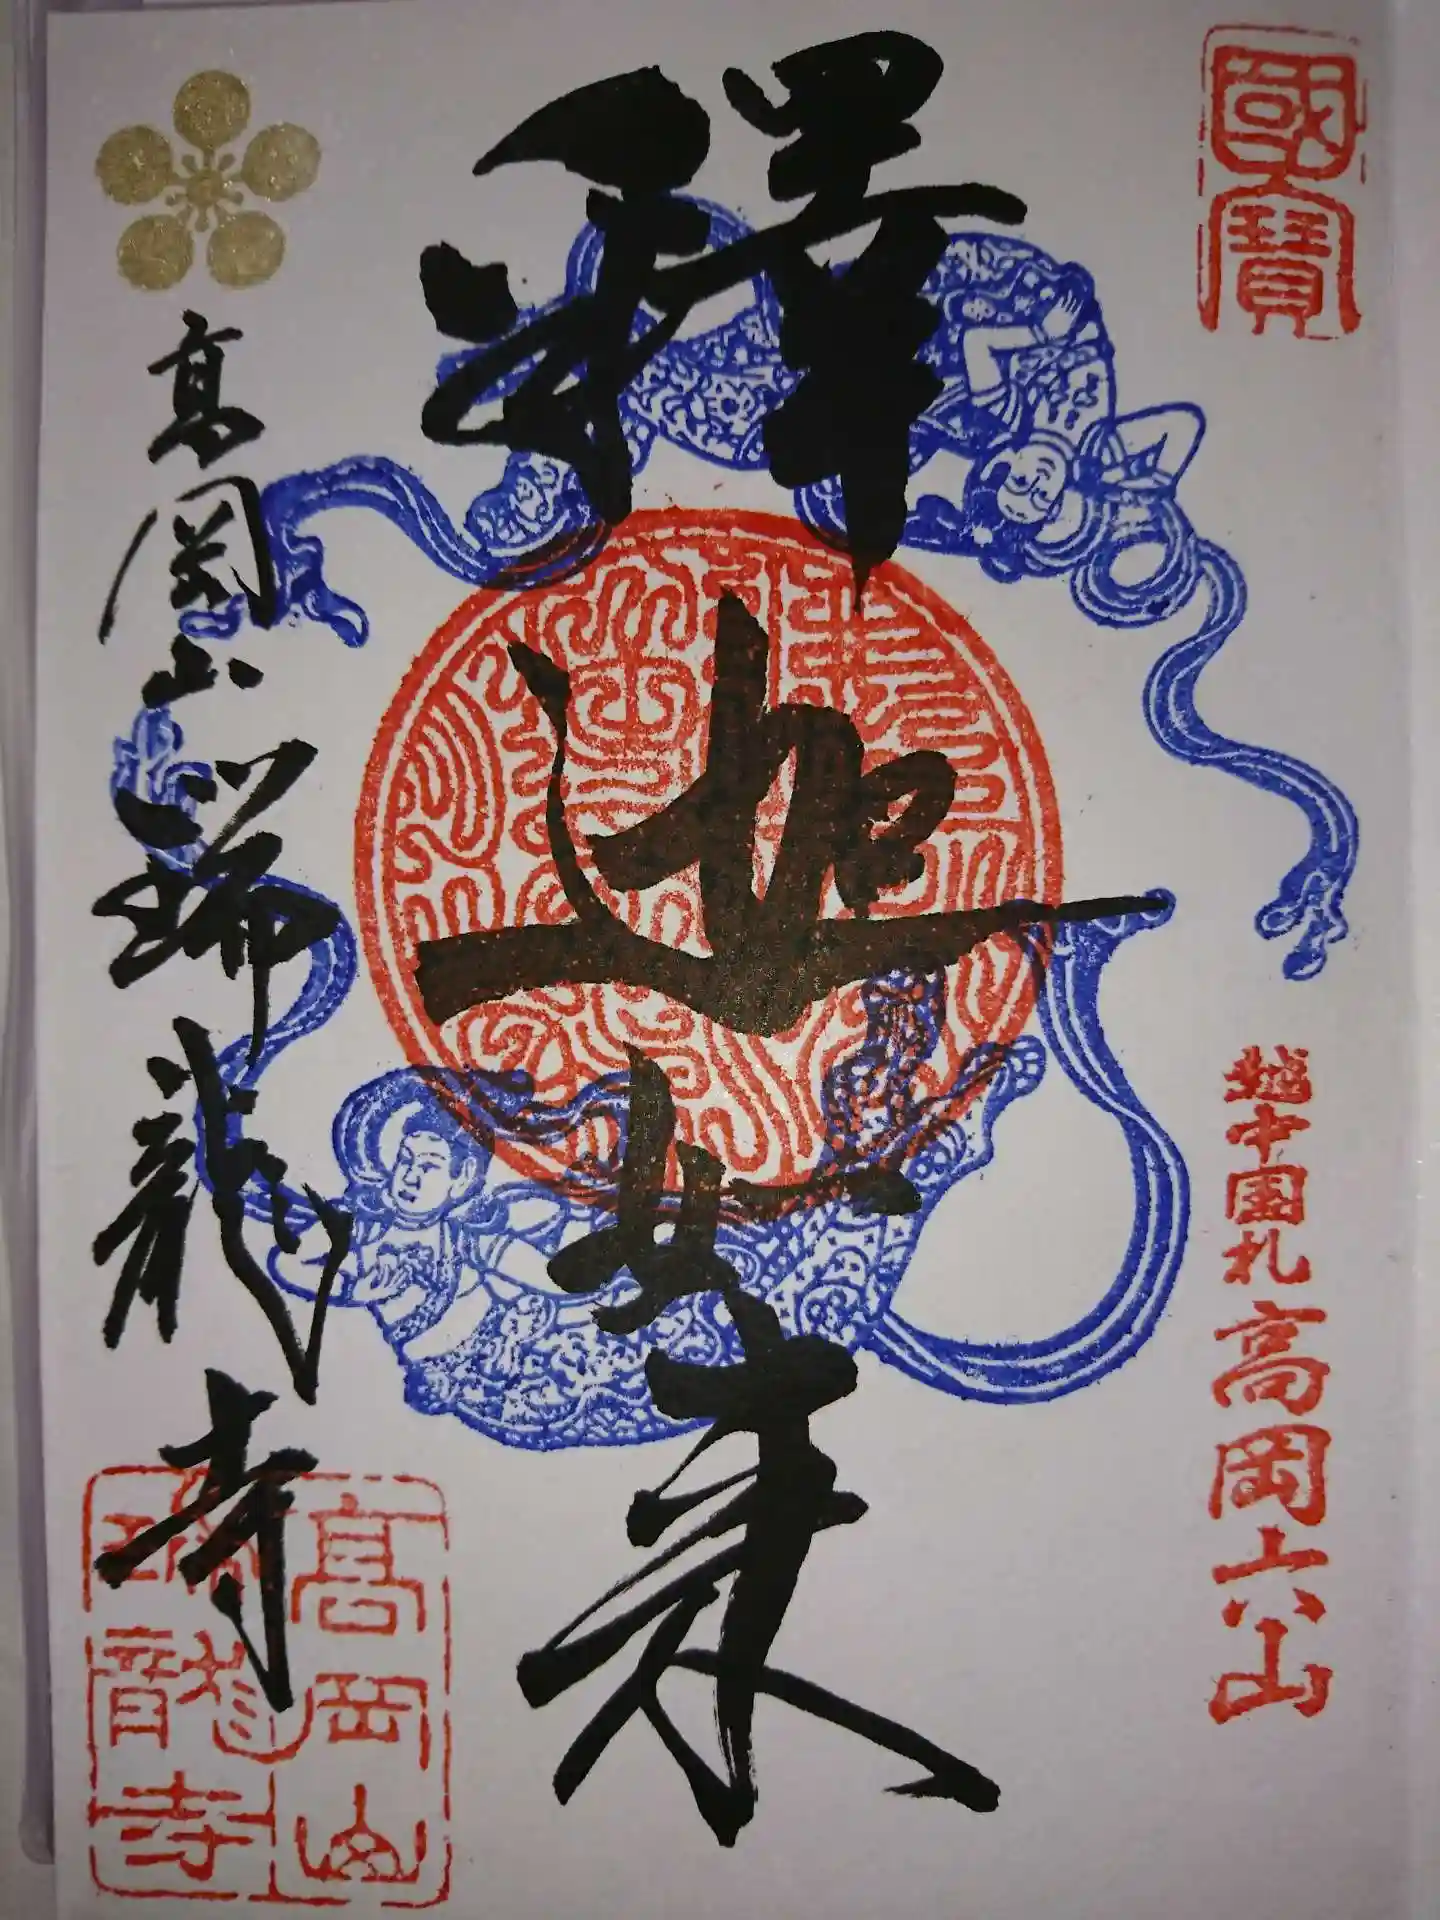 國寶
越中國札
高岡山
釋迦如来
高岡山
瑞龍寺
高岡山
瑞龍寺